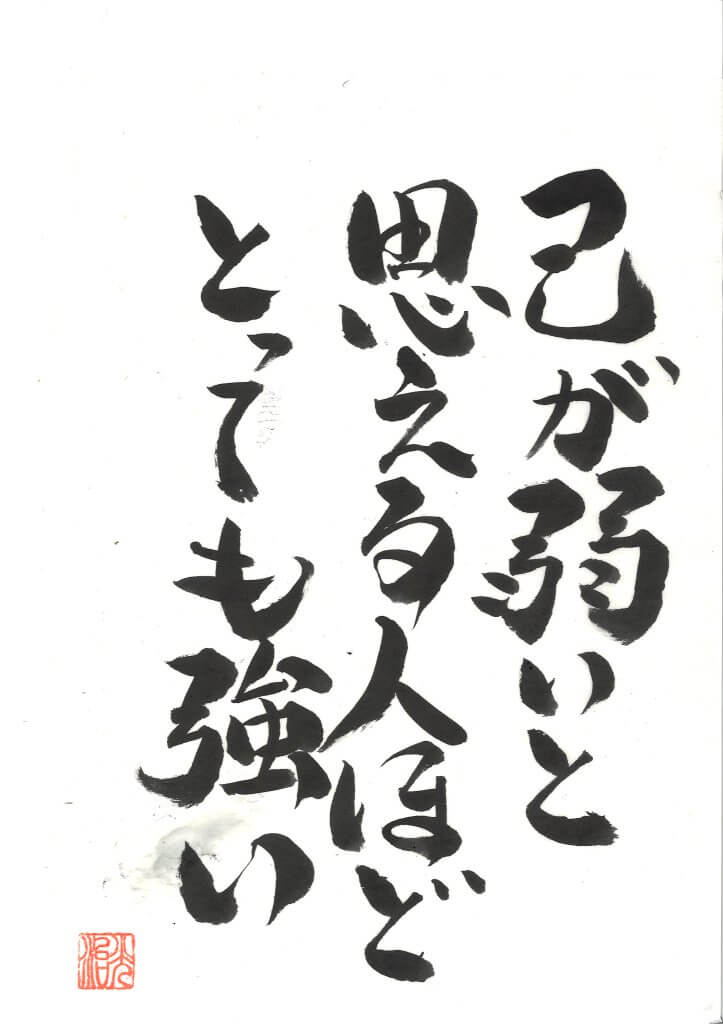 己が弱いと
思える人ほど
とっても強い